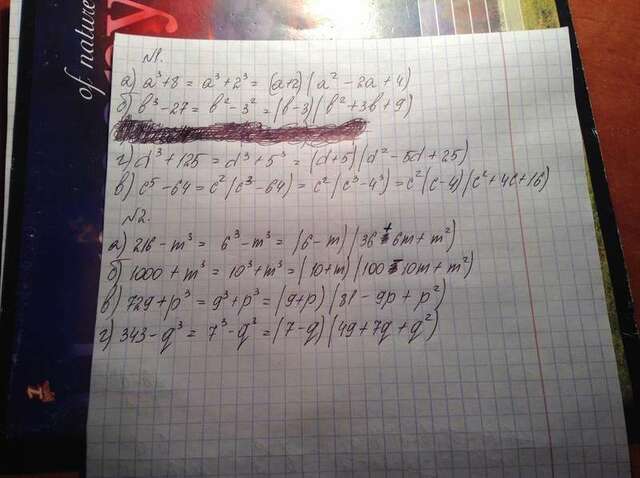 of nature
№1.
а) a³+8 = a³+2³ = (a+2)(a² - 2a + 4)
б) b³ - 27 = b² - 3² = (b-3)(b² + 3b + 9)
г) d³ + 125 = d³ + 5³ = (d+5)(d² - 5d + 25)
в) c⁵ - 64 = c²(c³ - 64) = c²(c³ - 4³) = c²(c-4)(c² + 4c + 16)
№2.
а) 216 - m³ = 6³ - m³ = (6 - m)(36 + 6m + m²)
б) 1000 + m³ = 10³ + m³ = (10+m)(100 - 10m + m²)
в) 729 + p³ = 9³ + p³ = (9+p)(81 - 9p + p²)
г) 343 - q³ = 7³ - q³ = (7 - q)(49 + 7q + q²)
1